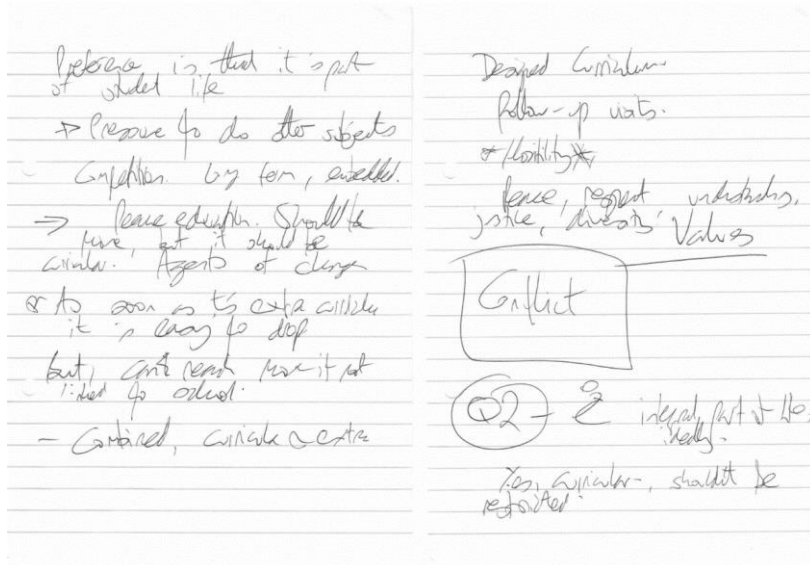 Preference is that it is part
of student life
→ Pressure to do other subjects
Competition. Long term, embedded.
→ Peace education. Should be
more, but it should be
curricular. Agents of change
As soon as it's extra curricular
it is easy to drop
but, can't reach more if not
linked to school.
- Combined, curricular ~ extra
Designed Curriculum
Follow-up visits.
*Hostility*
Peace, respect understanding,
justice, diversity Values
Conflict
Q2 - integral part of life
ideally.
Yes, curricular, shouldn't be
restricted.